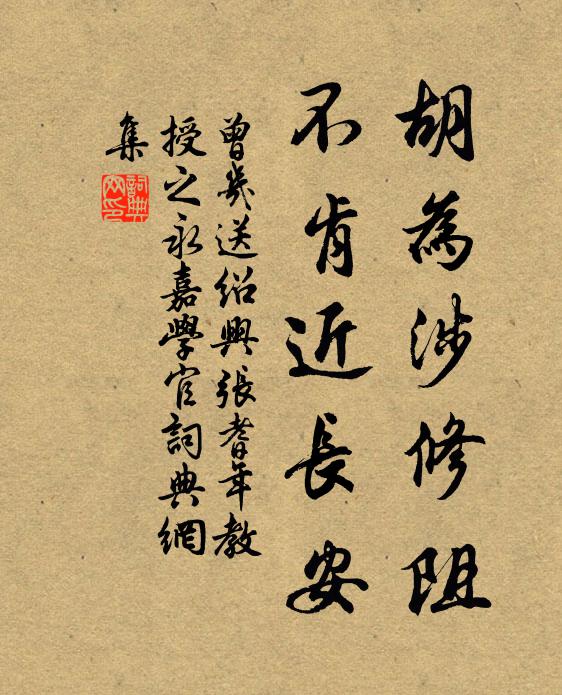 胡為涉修阻
不肯近長安
曾幾送紹興張耆年教
授之永嘉學官詞典網
集
詞典網印